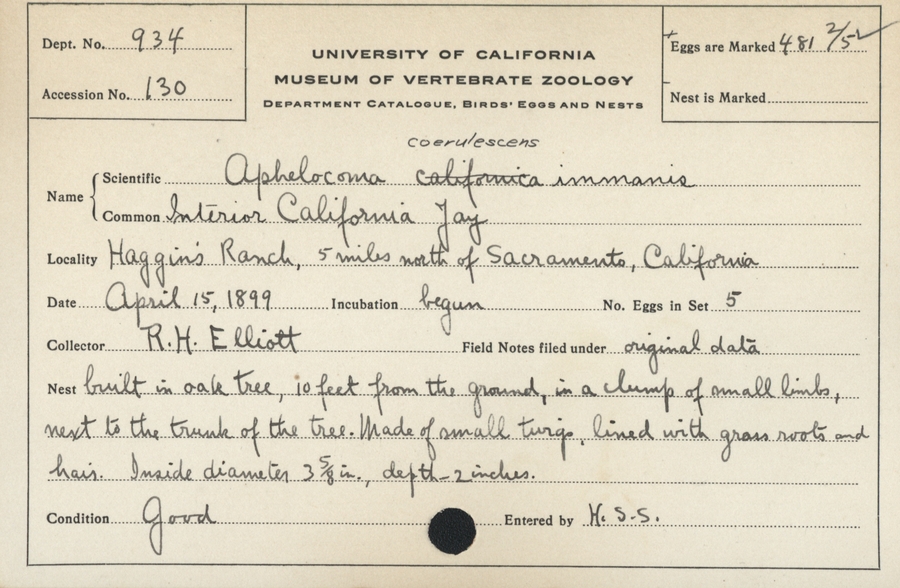 Dept. No. 934
Accession No. 130
UNIVERSITY OF CALIFORNIA
MUSEUM OF VERTEBRATE ZOOLOGY
DEPARTMENT CATALOGUE, BIRDS' EGGS AND NESTS
Eggs are Marked 481 2/5
Nest is Marked
coerulescens
Name
Scientific Aphelocoma californica immanis
Common Interior California Jay
Locality Haggin's Ranch, 5 miles north of Sacramento, California
Date April 15, 1899 Incubation begun No. Eggs in Set 5
Collector R.H. Elliott Field Notes filed under original data
Nest built in oak tree, 10 feet from the ground, in a clump of small limbs,
next to the trunk of the tree. Made of small twigs, lined with grass roots and
hair. Inside diameter 3 5/8 in., depth - 2 inches.
Condition Good Entered by H. S. S.